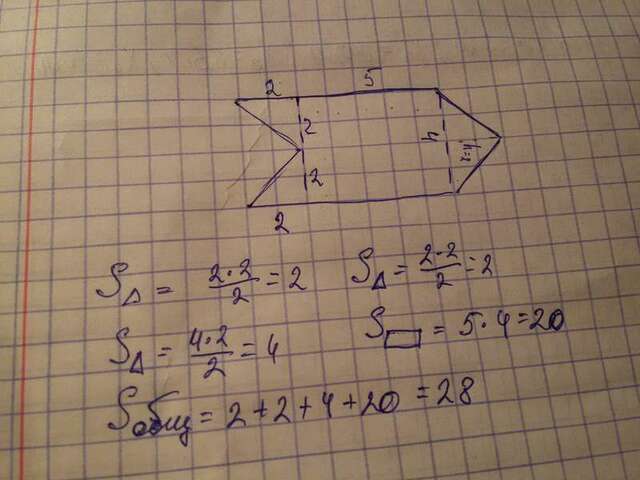 2 5
2
2 4
2
S△ = 2·2/2 = 2 S△ = 2·2/2 = 2
S△ = 4·2/2 = 4 S▭ = 5·4=20
Sобщ = 2+2+4+20 = 28